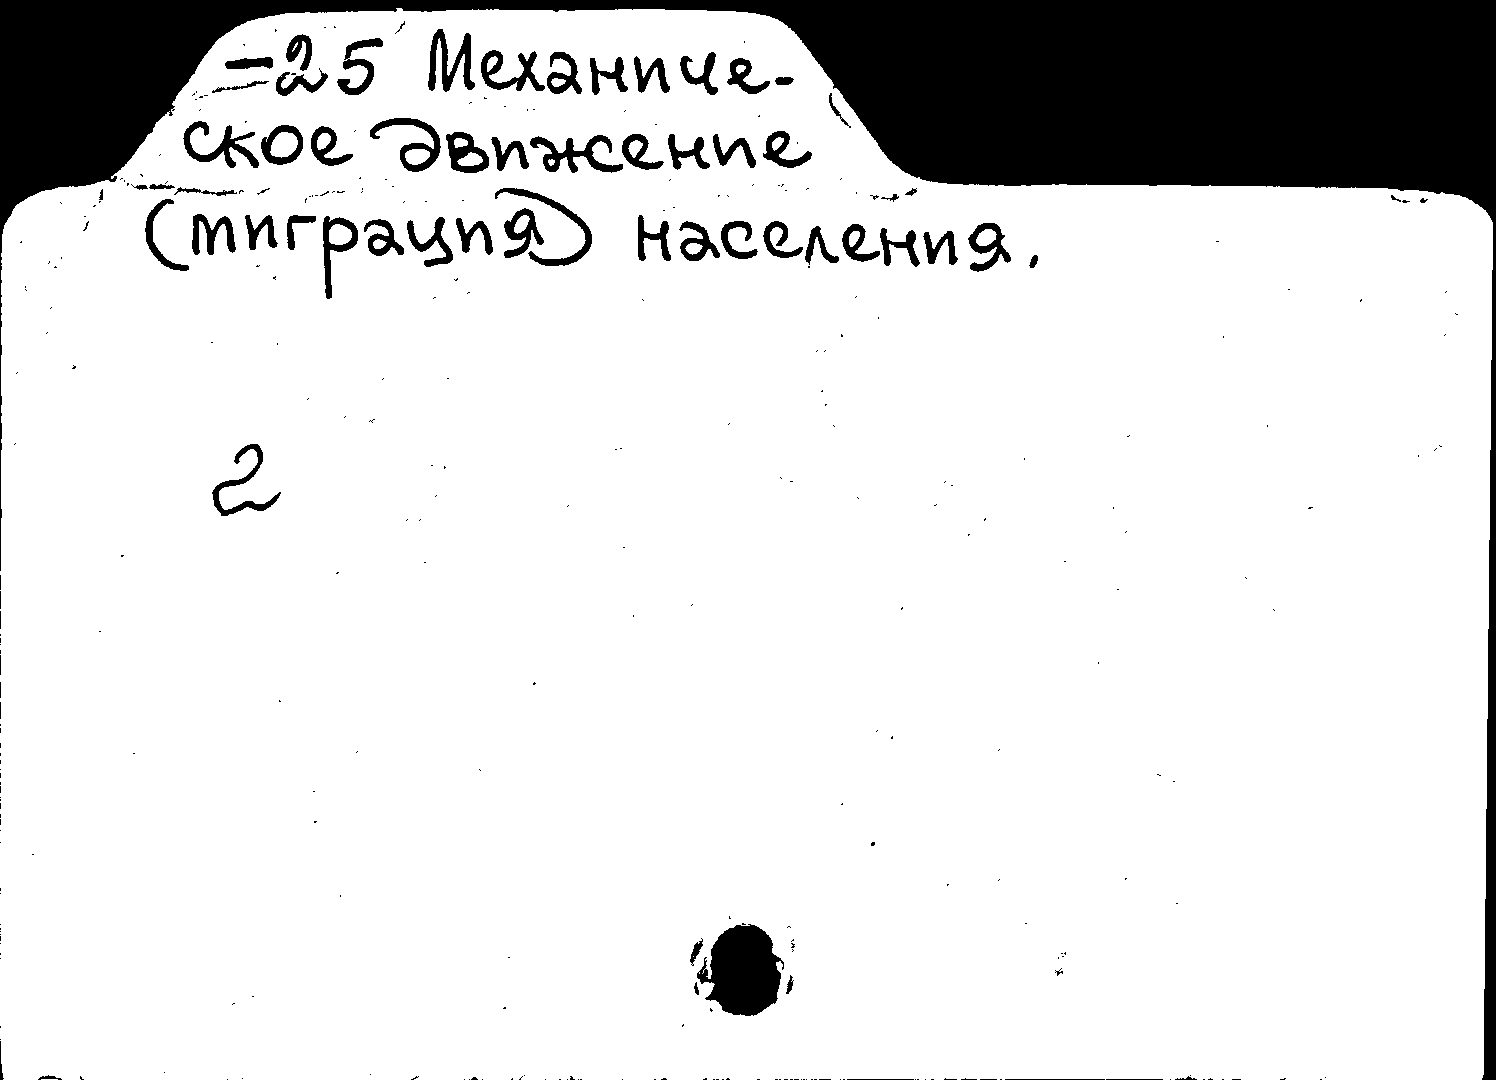 -25 Механиче-
ское движение
(миграция) населения.
2